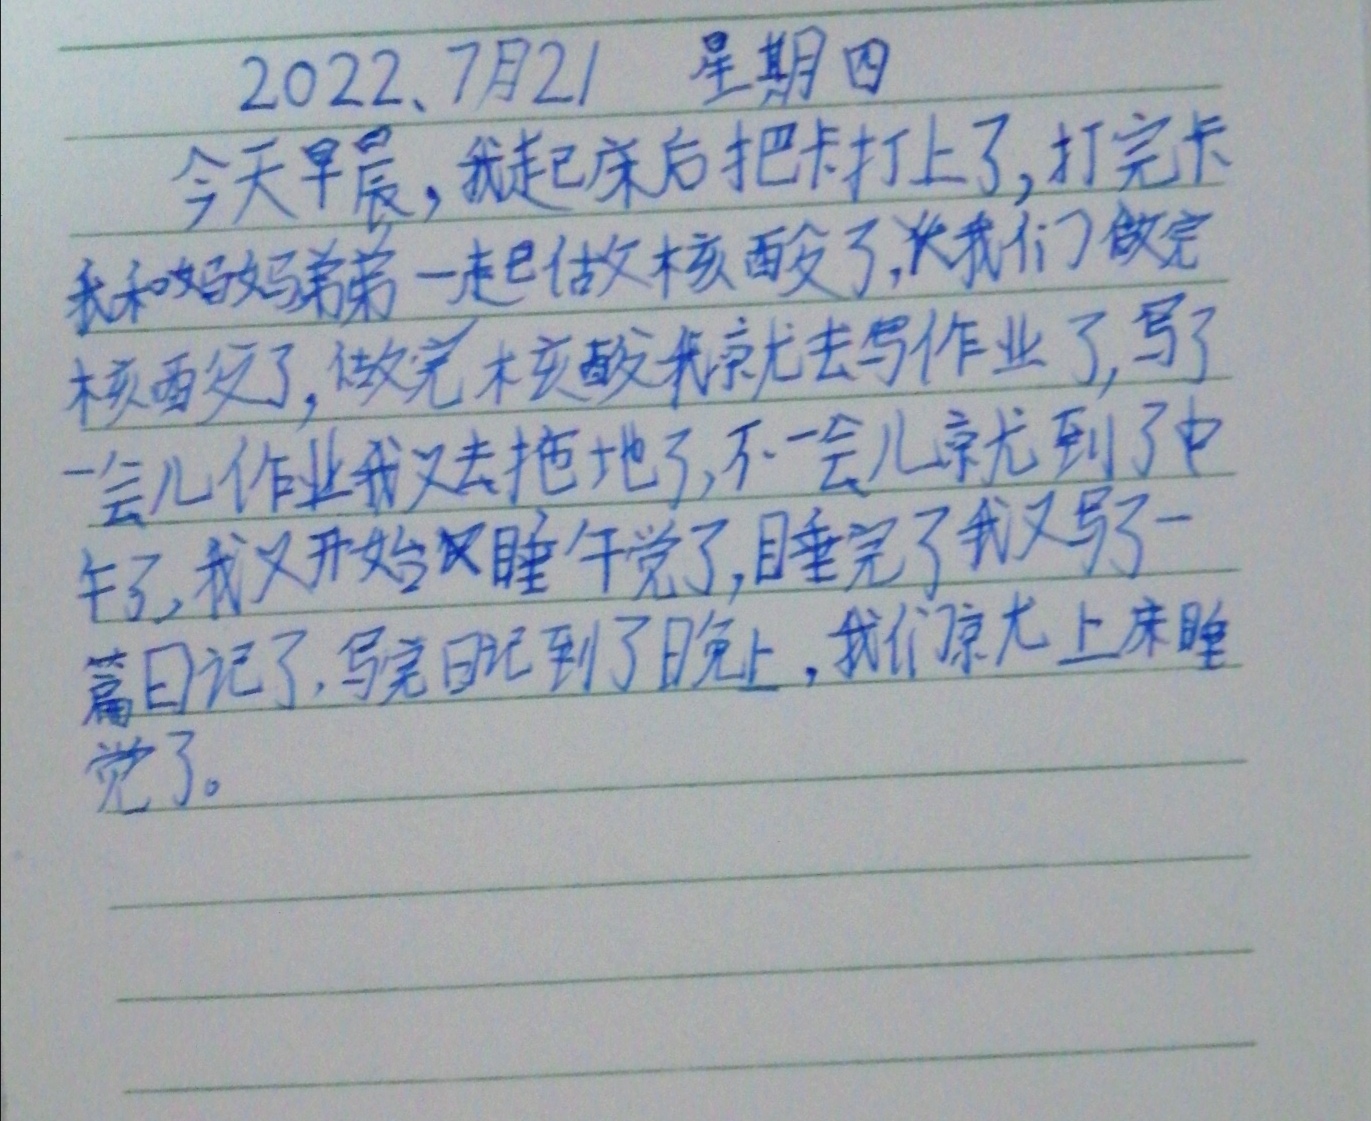 2022、7月21 星期四
今天早晨,我起床后把卡打上了,打完卡
我和妈妈弟弟一起做核酸了,我们做完
核酸了,做完核酸我就去写作业了,写了
一会儿作业我又去拖地了,不一会儿就到了中
午了,我又开始睡午觉了,睡完了我又写了一
篇日记了.写完日记到了晚上,我们就上床睡
觉了。